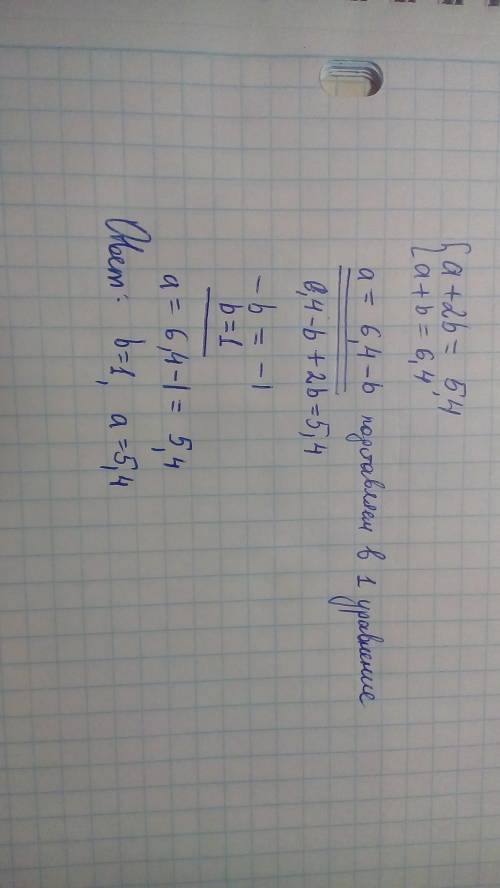 {a + 2b = 5,4
{a + b = 6,4
a = 6,4 - b подставляем в 1 уравнение
6,4 - b + 2b = 5,4
-b = -1
b = 1
a = 6,4 - 1 = 5,4
Ответ: b = 1, a = 5,4